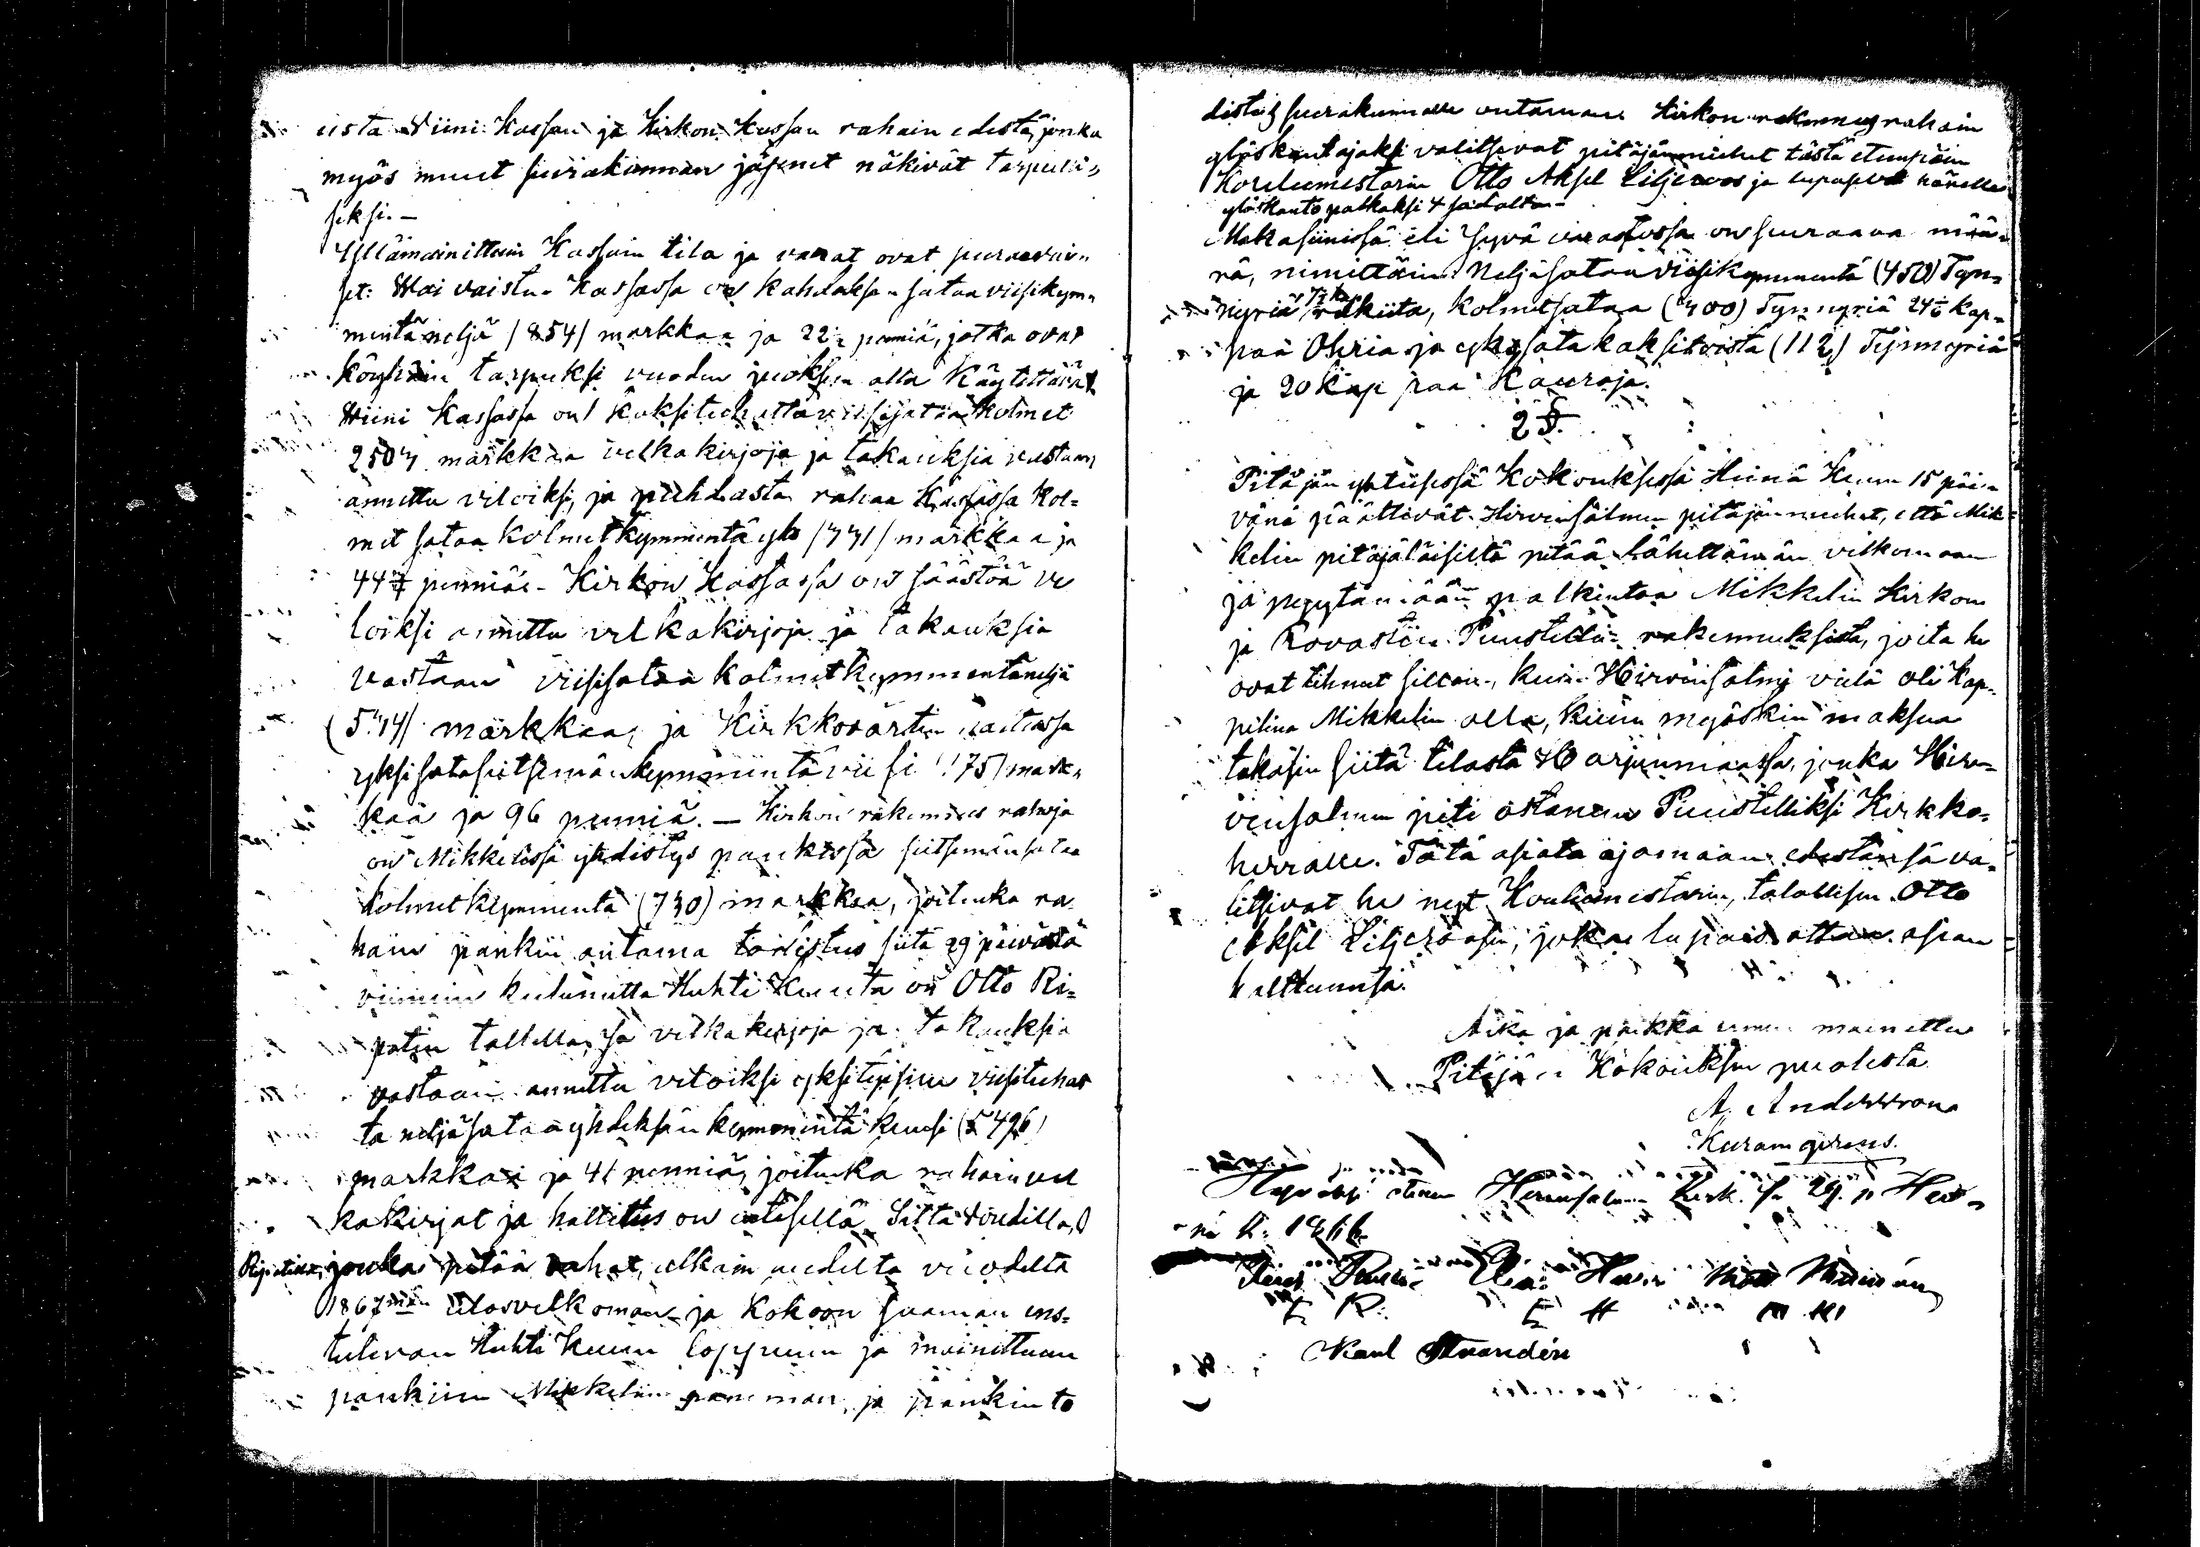 uista Wiini Kassan ja Kirkon Kassan rahain edestä, jonka
myös muut seurakunnan jäsenet näkivät tarpelli-
seksi. —
Yllämainittuin Kassain tila ja varat ovat seuraavai-
set: Waivaistu- Kassassa on kahdeksan sataa viisikym-
mentä neljä /854/ markkaa ja 22 penniä, jotka ovat
köyhäin tarpeeksi vuoden juoksun alla käytettävät
Wiini Kassassa on kaksituhatta viisisataa kolmet
2503 markkaa velkakirjoja ja takauksia vastaan
annettu veloiksi, ja puhdasta rahaa Kassassa kol-
met sataa kolmetkymmentä yks /331/ markkaa ja
44 penniä. Kirkon Kassassa on säästöä ve
loiksi annettu velkakirjoja ja takauksia
vastaan viisisataa kolmetkymmentäneljä
(534) markkaa, ja Kirkkovärtin
yksisataseitsemänkymmentä viisi /175/ mark-
kaa ja 96 penniä. — Kirkon rakennus rahoja
on Mikkelissä yhdistys pankissa seitsemänsataa
kolmetkymmentä (730) markkaa, joitenka ra
hain pankin antama todistus siitä 29 päivästä
viimein kulunutta Huhti Kuuta on Otto Ri-
patin tallella, sä velkakirjoja ja takauksia
vastaan annettu veloiksi viisituhat
ta neljäsataa yhdeksänkymmentä kuusi (5496)
markkaa ja 41 penniä, joitenka rahain vel
kakirjat ja hallitus on itsellä Lilla Woudilla,
Ripatilla, jonka pitää rahat, alkain uudelta vuodelta
1867 män ulosvelkoman ja kokoon saaman ens-
tulevan Huhti Kuun loppuun ja mainittuun
pankiin Mikkeliin paneman, ja pankin to
distus seurakunnalle antaman Kirkon rakennus rahain
ylöskantajaksi valitsevat pitäjänmiehet tästä etenpäin
Koulumestarin Otto Aksel Liljeroos ja lupasivat hänelle
ylöskanto palkaksi 4 sadalta. —
Makasiinissä eli Jyvä varastossa on seuraava mää-
rä, nimittäin: Neljäsataa viisikymmentä (450) Tyn-
nyriä rukiita, kolmetsataa (300) Tynnyriä 24 kap-
paa Ohria ja yksisata kaksitoista (112) Tynnyriä
ja 20 kappaa Kauroja.
2 §.
Pitäjän yhteisessä Kokouksessa Heinä Kuun 15 päi-
vänä päättivät Hirvensalmen pitäjänmiehet, että Mik-
kelin pitäjäläisiltä pitää lähettämän velkomaan
ja pyytämään palkintoa Mikkelin Kirkon
ja Rovastin Puustellin rakennuksista, joita he
ovat tehneet silloin, kuin Hirvensalmi vielä oli Kap-
pelina Mikkelin alla, kuin myöskin maksua
takasin siitä tilasta Harjunmaassa, jonka Hir-
vensalmen piti ostaman Puustelliksi Kirkko-
herralle. Tätä asiata ajamaan edestänsä va-
litsivat he nyt Koulumestarin, talollisen Otto
Aksel Liljeroosin, joka lupasi ottaa asian
haltuunsa.
Aika ja paikka ennen mainittu
Pitäjän Kokouksen puolesta
A. Andersson
Kuramgerens.
Hirvensalmen Kirk. sa 29. p Hei-
nä K. 1866.
Matt Manninen
E R. E H M M
Karl Strandén